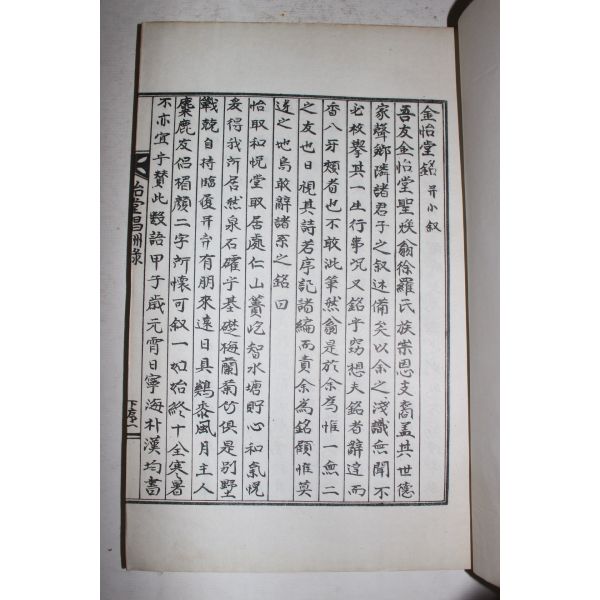 金怡堂銘 幷小叙
吾友金怡堂聖煥翁徐羅氏族崇恩支裔盖其世德
家聲鄉隣諸君子之叙述備矣以余之淺識無聞不
必枚擧其一生行事況又銘乎竊想夫銘者辭達而
香人牙頰者也不敢泚筆然翁是於余為惟一無二
之友也日視其詩若序記諸編而責余為銘顧惟莫
逆之地烏敢辭諸系之銘曰
怡取和悅堂取居處仁山簣屹智水塘貯心和氣悅
爰得我所居然泉石確乎基礎梅蘭菊竹俱是別墅
戰兢自持臨履幷命有朋來遠日具鷄黍風月主人
麋鹿友侶楣顏二字所懷可叙一如始終十全寒暑
不亦宜乎贊此數語甲子歲元宵日寧海朴漢均書
怡堂昌酬錄
下序一